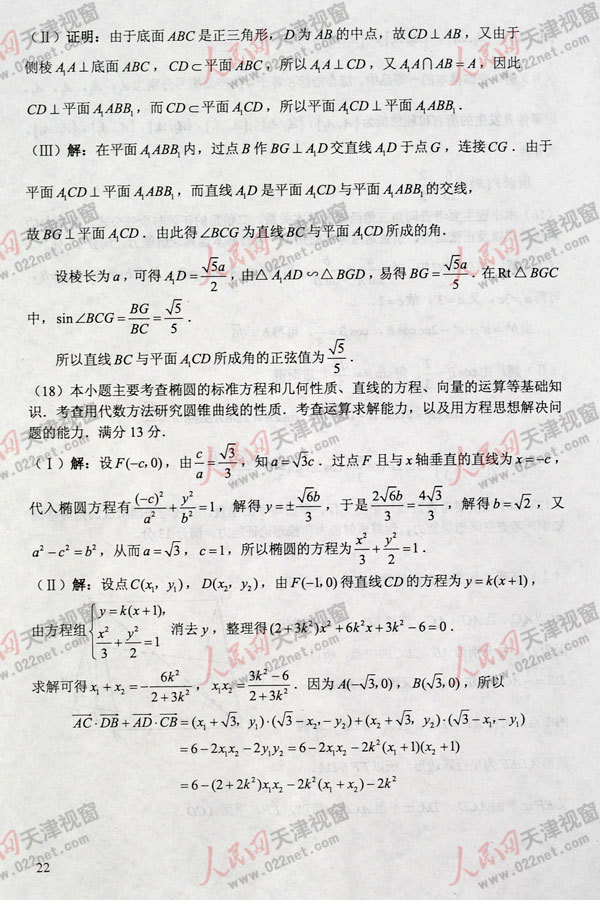 (Ⅱ)证明：由于底面ABC是正三角形，D为AB的中点，故CD⊥AB，又由于
侧棱A₁A⊥底面ABC，CD⊂平面ABC，所以A₁A⊥CD，又A₁A∩AB=A，因此
CD⊥平面A₁ABB₁，而CD⊂平面A₁CD，所以平面A₁CD⊥平面A₁ABB₁．
(Ⅲ)解：在平面A₁ABB₁内，过点B作BG⊥A₁D交直线A₁D于点G，连接CG．由于
平面A₁CD⊥平面A₁ABB₁，而直线A₁D是平面A₁CD与平面A₁ABB₁的交线，
故BG⊥平面A₁CD．由此得∠BCG为直线BC与平面A₁CD所成的角．
设棱长为a，可得A₁D=√5a/2，由△A₁AD∽△BGD，易得BG=√5a/5．在Rt△BGC
中，sin∠BCG=BG/BC=√5/5．
所以直线BC与平面A₁CD所成角的正弦值为√5/5．
(18)本小题主要考查椭圆的标准方程和几何性质、直线的方程、向量的运算等基础知
识．考查用代数方法研究圆锥曲线的性质．考查运算求解能力，以及用方程思想解决问
题的能力．满分13分．
(Ⅰ)解：设F(−c,0)，由c/a=√3/3，知a=√3c．过点F且与x轴垂直的直线为x=−c，
代入椭圆方程有(−c)²/a²+y²/b²=1，解得y=±√6b/3，于是2√6b/3=4√3/3，解得b=√2，又
a²−c²=b²，从而a=√3，c=1，所以椭圆的方程为x²/3+y²/2=1．
(Ⅱ)解：设点C(x₁, y₁)，D(x₂, y₂)，由F(−1,0)得直线CD的方程为y=k(x+1)，
由方程组{y=k(x+1), x²/3+y²/2=1 消去y，整理得(2+3k²)x²+6k²x+3k²−6=0．
求解可得x₁+x₂=−6k²/(2+3k²)，x₁x₂=(3k²−6)/(2+3k²)．因为A(−√3,0)，B(√3,0)，所以
AC·DB+AD·CB=(x₁+√3, y₁)·(√3−x₂,−y₂)+(x₂+√3, y₂)·(√3−x₁,−y₁)
=6−2x₁x₂−2y₁y₂=6−2x₁x₂−2k²(x₁+1)(x₂+1)
=6−(2+2k²)x₁x₂−2k²(x₁+x₂)−2k²
22
人民网 天津视窗
www.022net.com